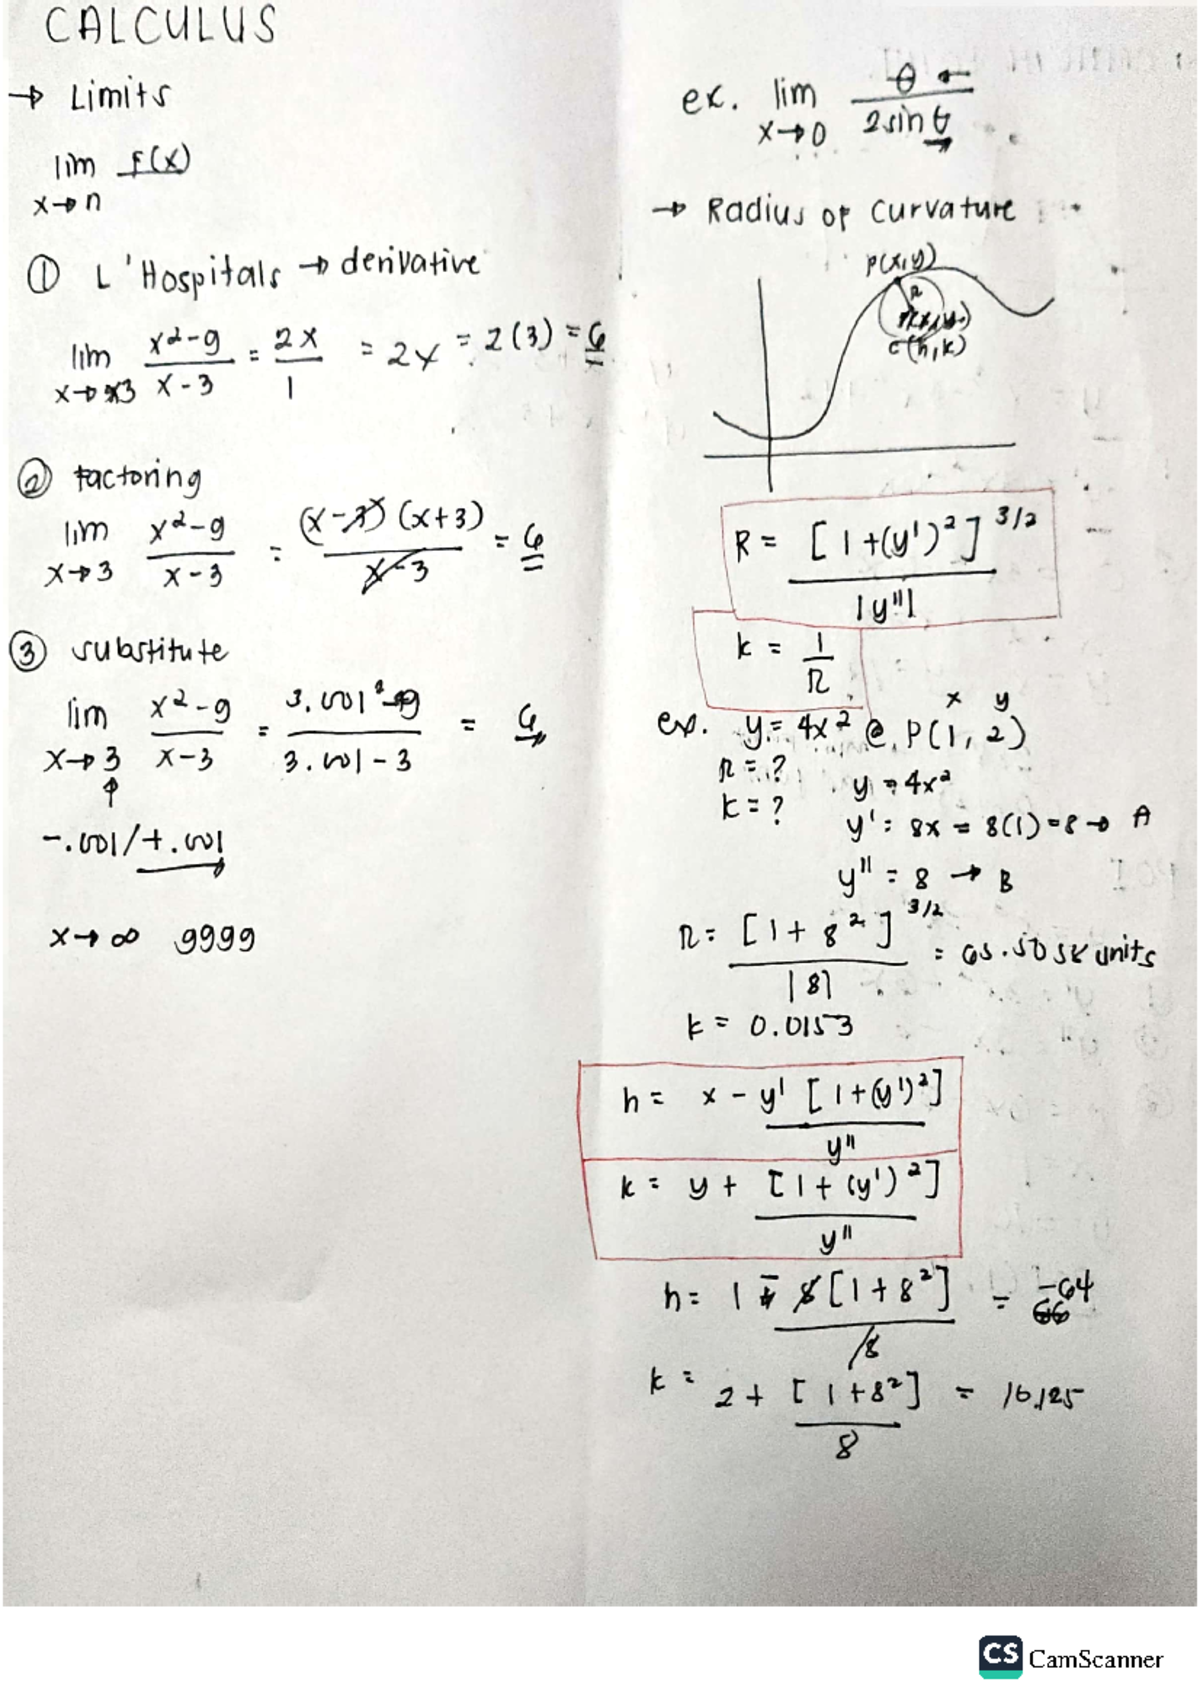 CALCULUS
→ Limits
lim f(x)
x→n
① L'Hospitals → derivative
lim x²-9 / x-3 = 2x / 1 = 2x = 2(3) = 6
x→3
② factoring
lim x²-9 / x-3 = (x-3)(x+3) / x-3 = 6
x→3
③ substitute
lim x²-9 / x-3 = 3.001²-9 / 3.001-3 = 6
x→3
↑
-.001/+.001
x→∞ 9999
ex. lim θ ← / 2sinθ
x→0
→ Radius of curvature
P(x,y)
R
C(h,k)
R = [1+(y')²]^3/2 / |y''|
k = 1 / R
x y
ex. y = 4x² @ P(1,2)
R = ?
k = ?
y = 4x²
y' = 8x = 8(1) = 8 → A
y'' = 8 → B
R = [1+8²]^3/2 / |8| = 65.5058 units
k = 0.0153
h = x - y'[1+(y')²] / y''
k = y + [1+(y')²] / y''
h = 1 - 8[1+8²] / 8 = -64
k = 2 + [1+8²] / 8 = 10.125
CS CamScanner